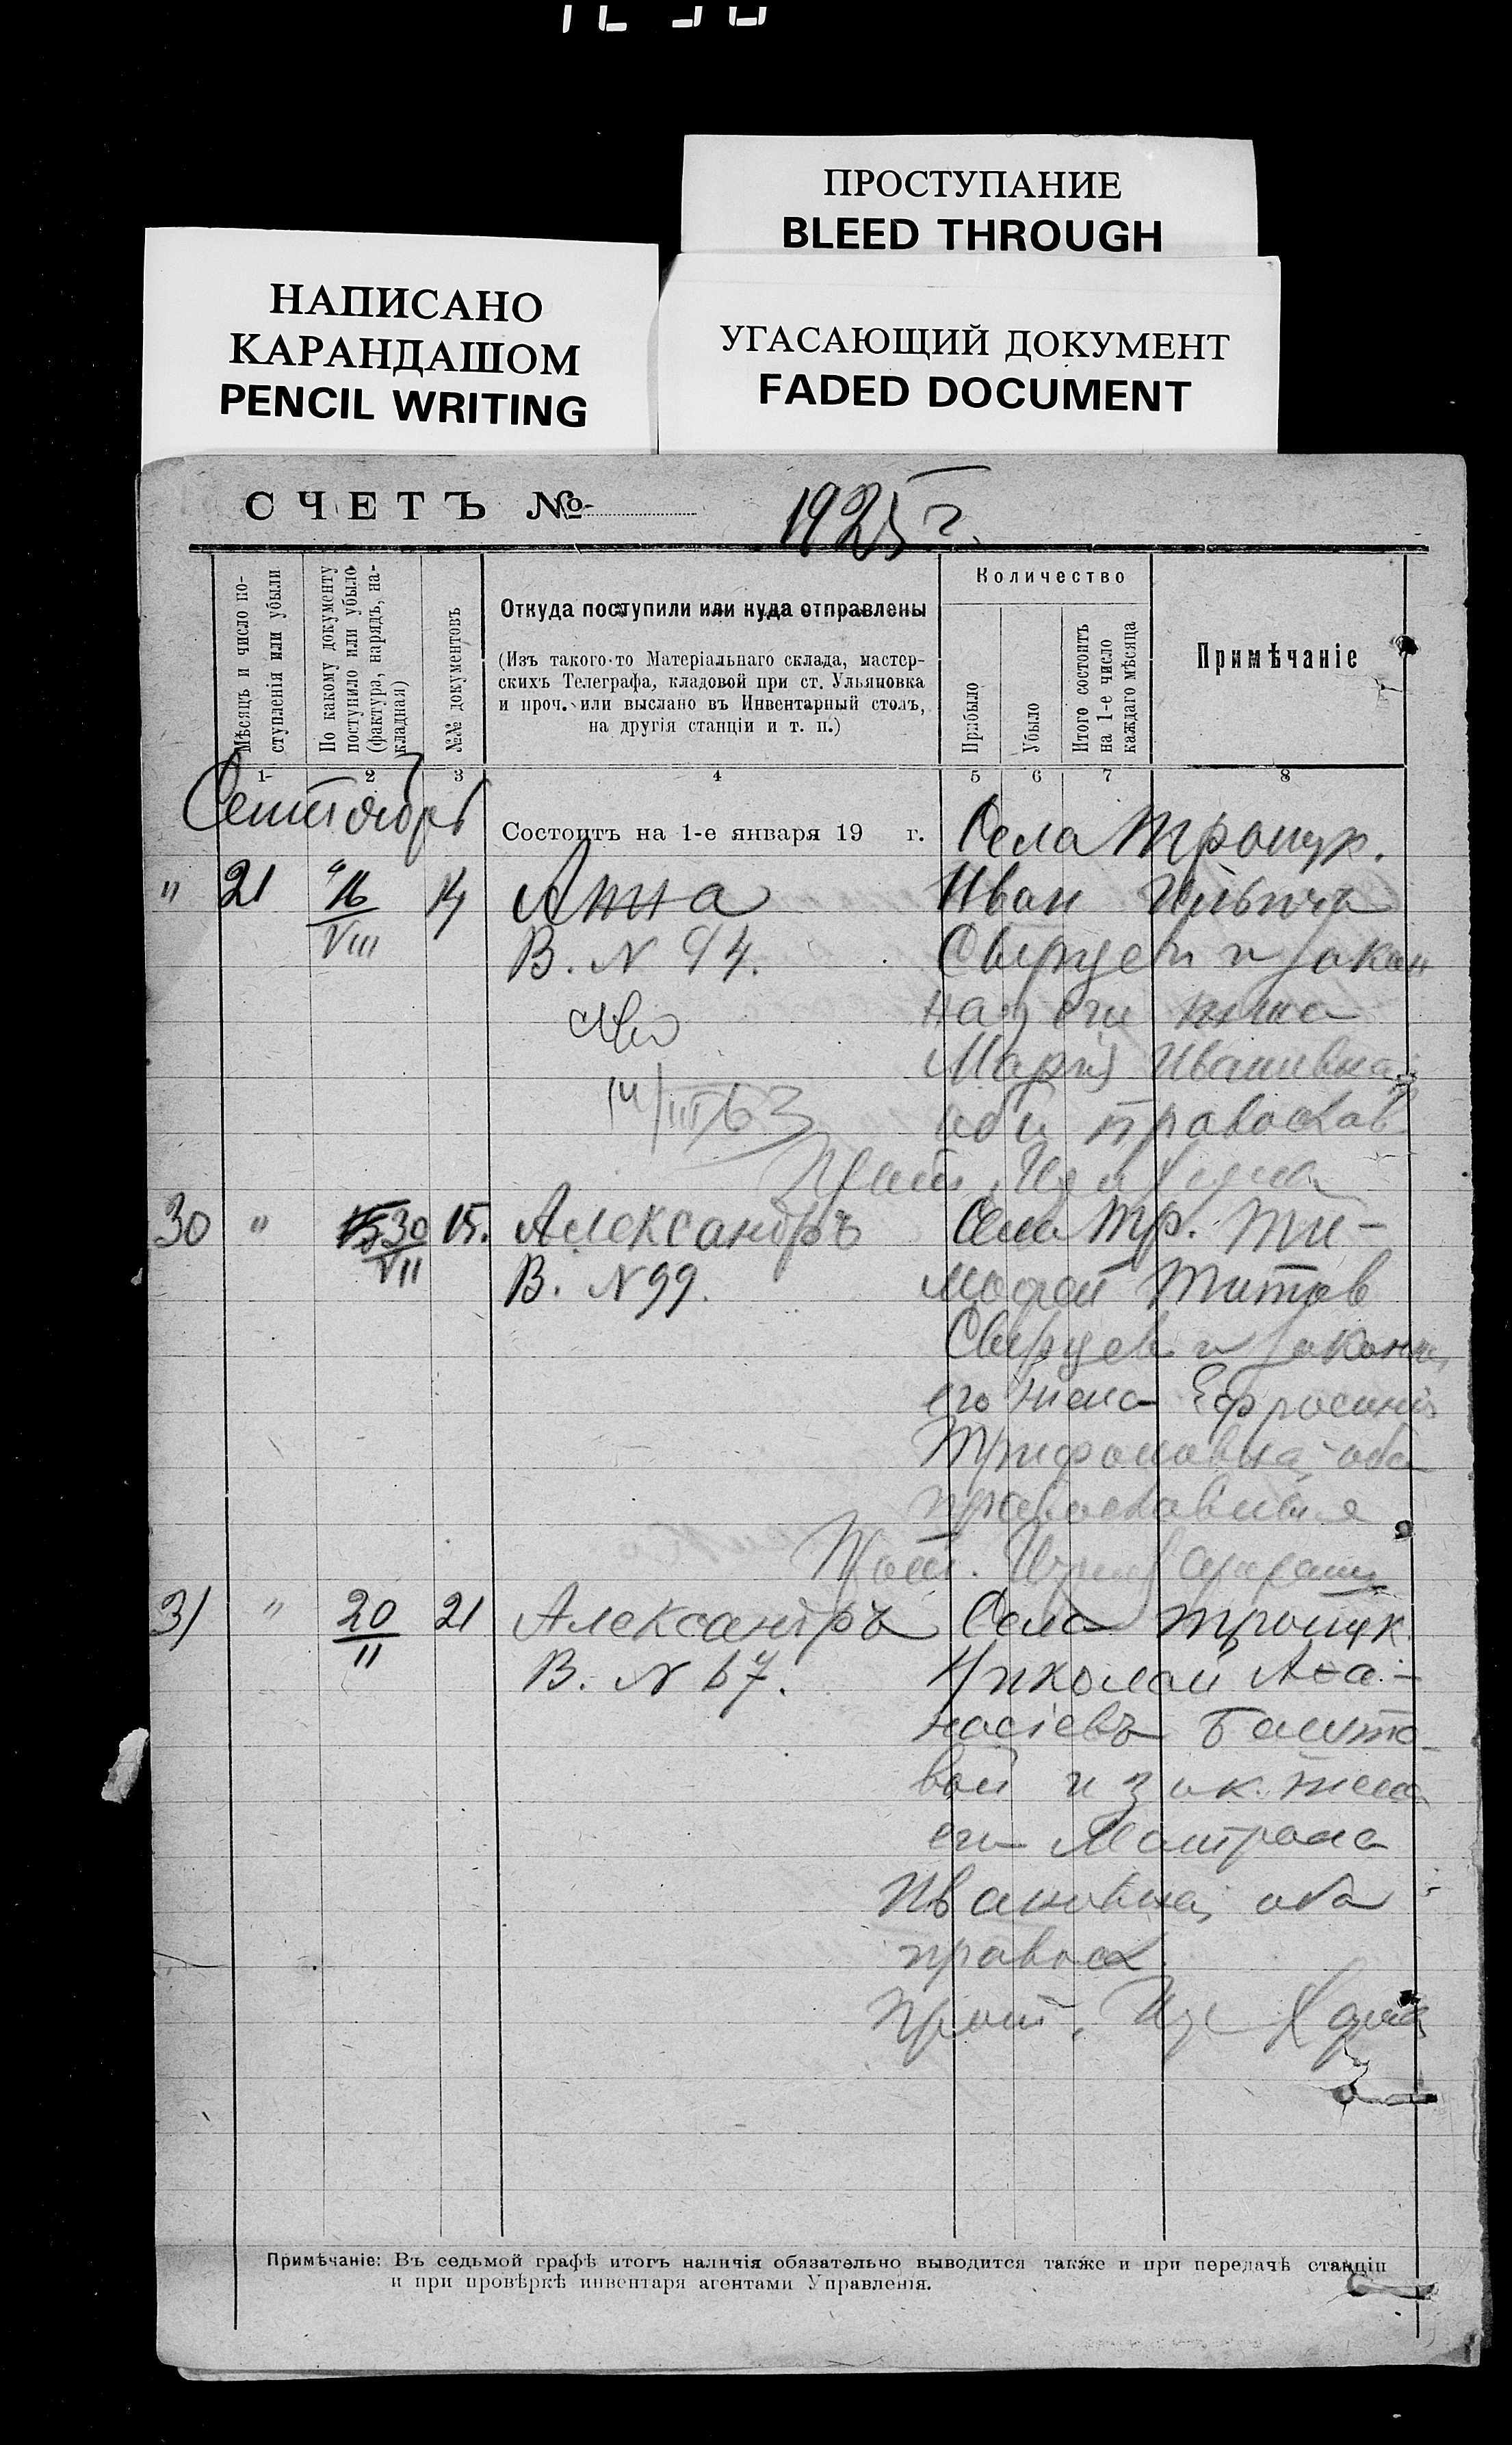 ПРОСТУПАНИЕ
BLEED THROUGH
НАПИСАНО
КАРАНДАШОМ
PENCIL WRITING
УГАСАЮЩИЙ ДОКУМЕНТ
FADED DOCUMENT
СЧЕТЪ №
1925 г.
Мѣсяцъ и число поступленія или убыли
По какому документу
поступило или убыло
(фактура, нарядъ, на-
кладная)
№№ документовъ
Откуда поступили или куда отправлены
(Изъ такого-то Матеріальнаго склада, мастер-
скихъ Телеграфа, кладовой при ст. Ульяновка
и проч. или выслано въ Инвентарный столъ,
на другія станціи и т. п.)
Количество
Прибыло
Убыло
Итого состоитъ
на 1-е число
каждаго мѣсяца
Примѣчаніе
1 2 3 4 5 6 7 8
Сентябрь
Состоитъ на 1-е января 19 г.
Села Троицк.
" 21 16/VIII 14 Анна
Иван
В. N 94.
и закон
его жена
Мария Ивановна
оба православ
30 " 30/VII 15. Александръ Села Тр. Ти-
В. N 99. мофей Титов
и законн.
его жена Ефросинія
Трифоновна оба
православные
Прот.
31 " 20/II 21 Александръ Села Троицк
В. N 67. Николай Аѳа-
насіевъ Балто-
вой и зак. жена
его Матрона
Ивановна, оба
правосл.
Прот.
Примѣчаніе: Въ седьмой графѣ итогъ наличія обязательно выводится также и при передачѣ станціи
и при провѣркѣ инвентаря агентами Управленія.